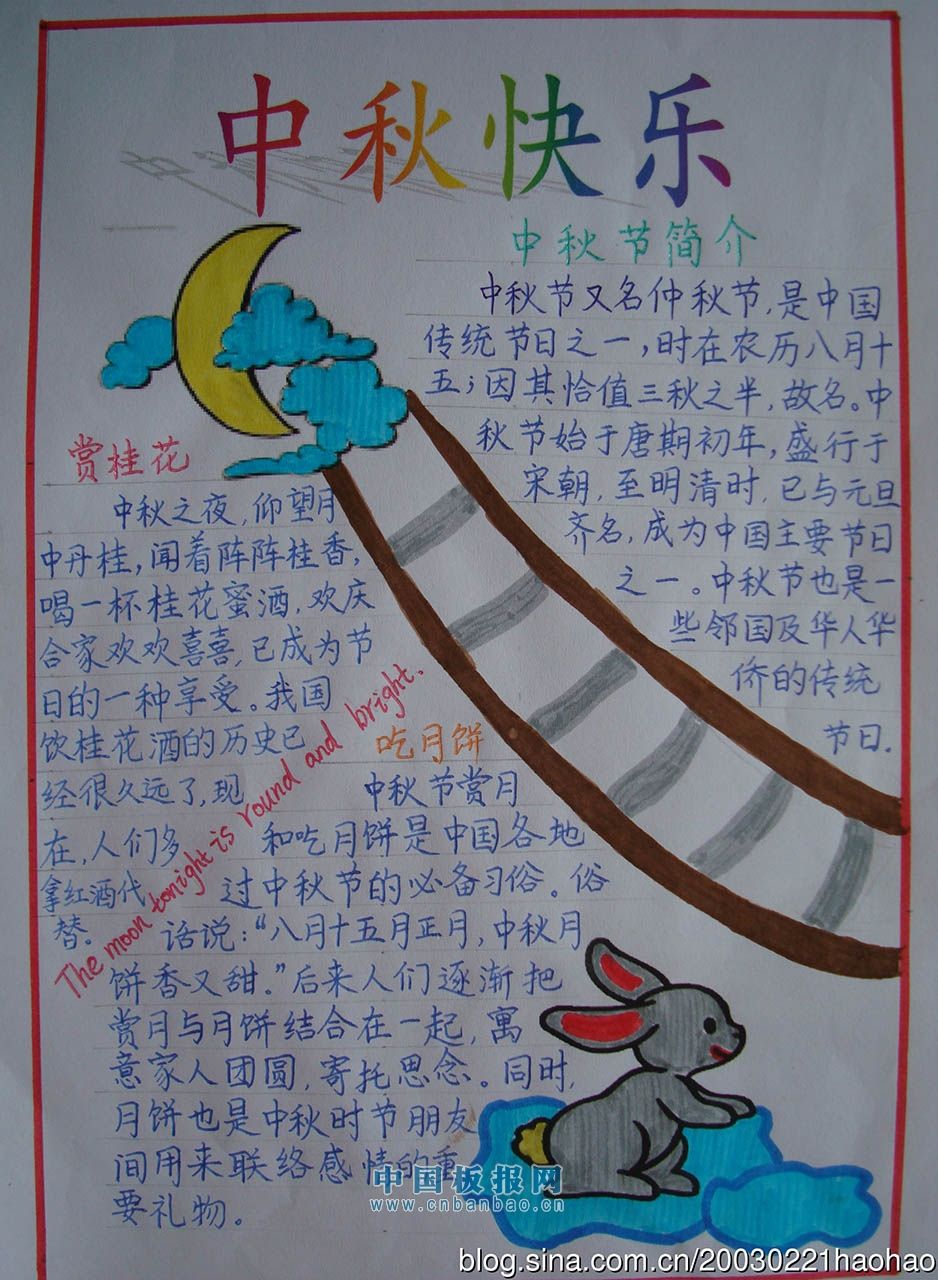 中秋快乐
中秋节简介
中秋节又名仲秋节，是中国
传统节日之一，时在农历八月十
五；因其恰值三秋之半，故名。中
秋节始于唐期初年，盛行于
宋朝，至明清时，已与元旦
齐名，成为中国主要节日
之一。中秋节也是一
些邻国及华人华
侨的传统
节日.
赏桂花
中秋之夜，仰望月
中丹桂，闻着阵阵桂香，
喝一杯桂花蜜酒，欢庆
合家欢欢喜喜，已成为节
日的一种享受。我国
饮桂花酒的历史已
经很久远了，现
在，人们多
拿红酒代
替。
The moon tonight is round and bright.
吃月饼
中秋节赏月
和吃月饼是中国各地
过中秋节的必备习俗。俗
话说：“八月十五月正月，中秋月
饼香又甜。”后来人们逐渐把
赏月与月饼结合在一起，寓
意家人团圆，寄托思念。同时，
月饼也是中秋时节朋友
间用来联络感情的重
要礼物。
中国板报网
www.cnbanbao.cn
blog.sina.com.cn/20030221haohao